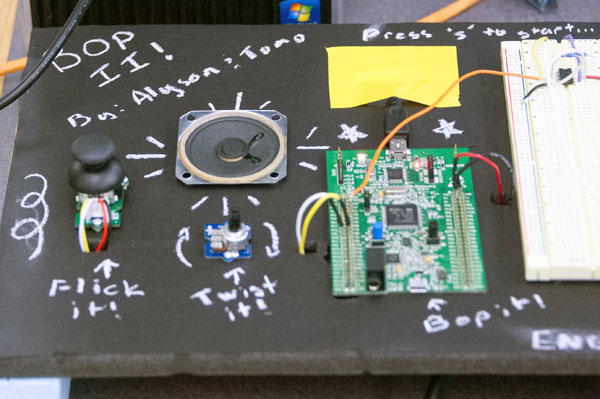 DOP
II!
By: Alyson & Tomo
Press 's' to start...
Flick
it!
Twist
it!
Bop it!